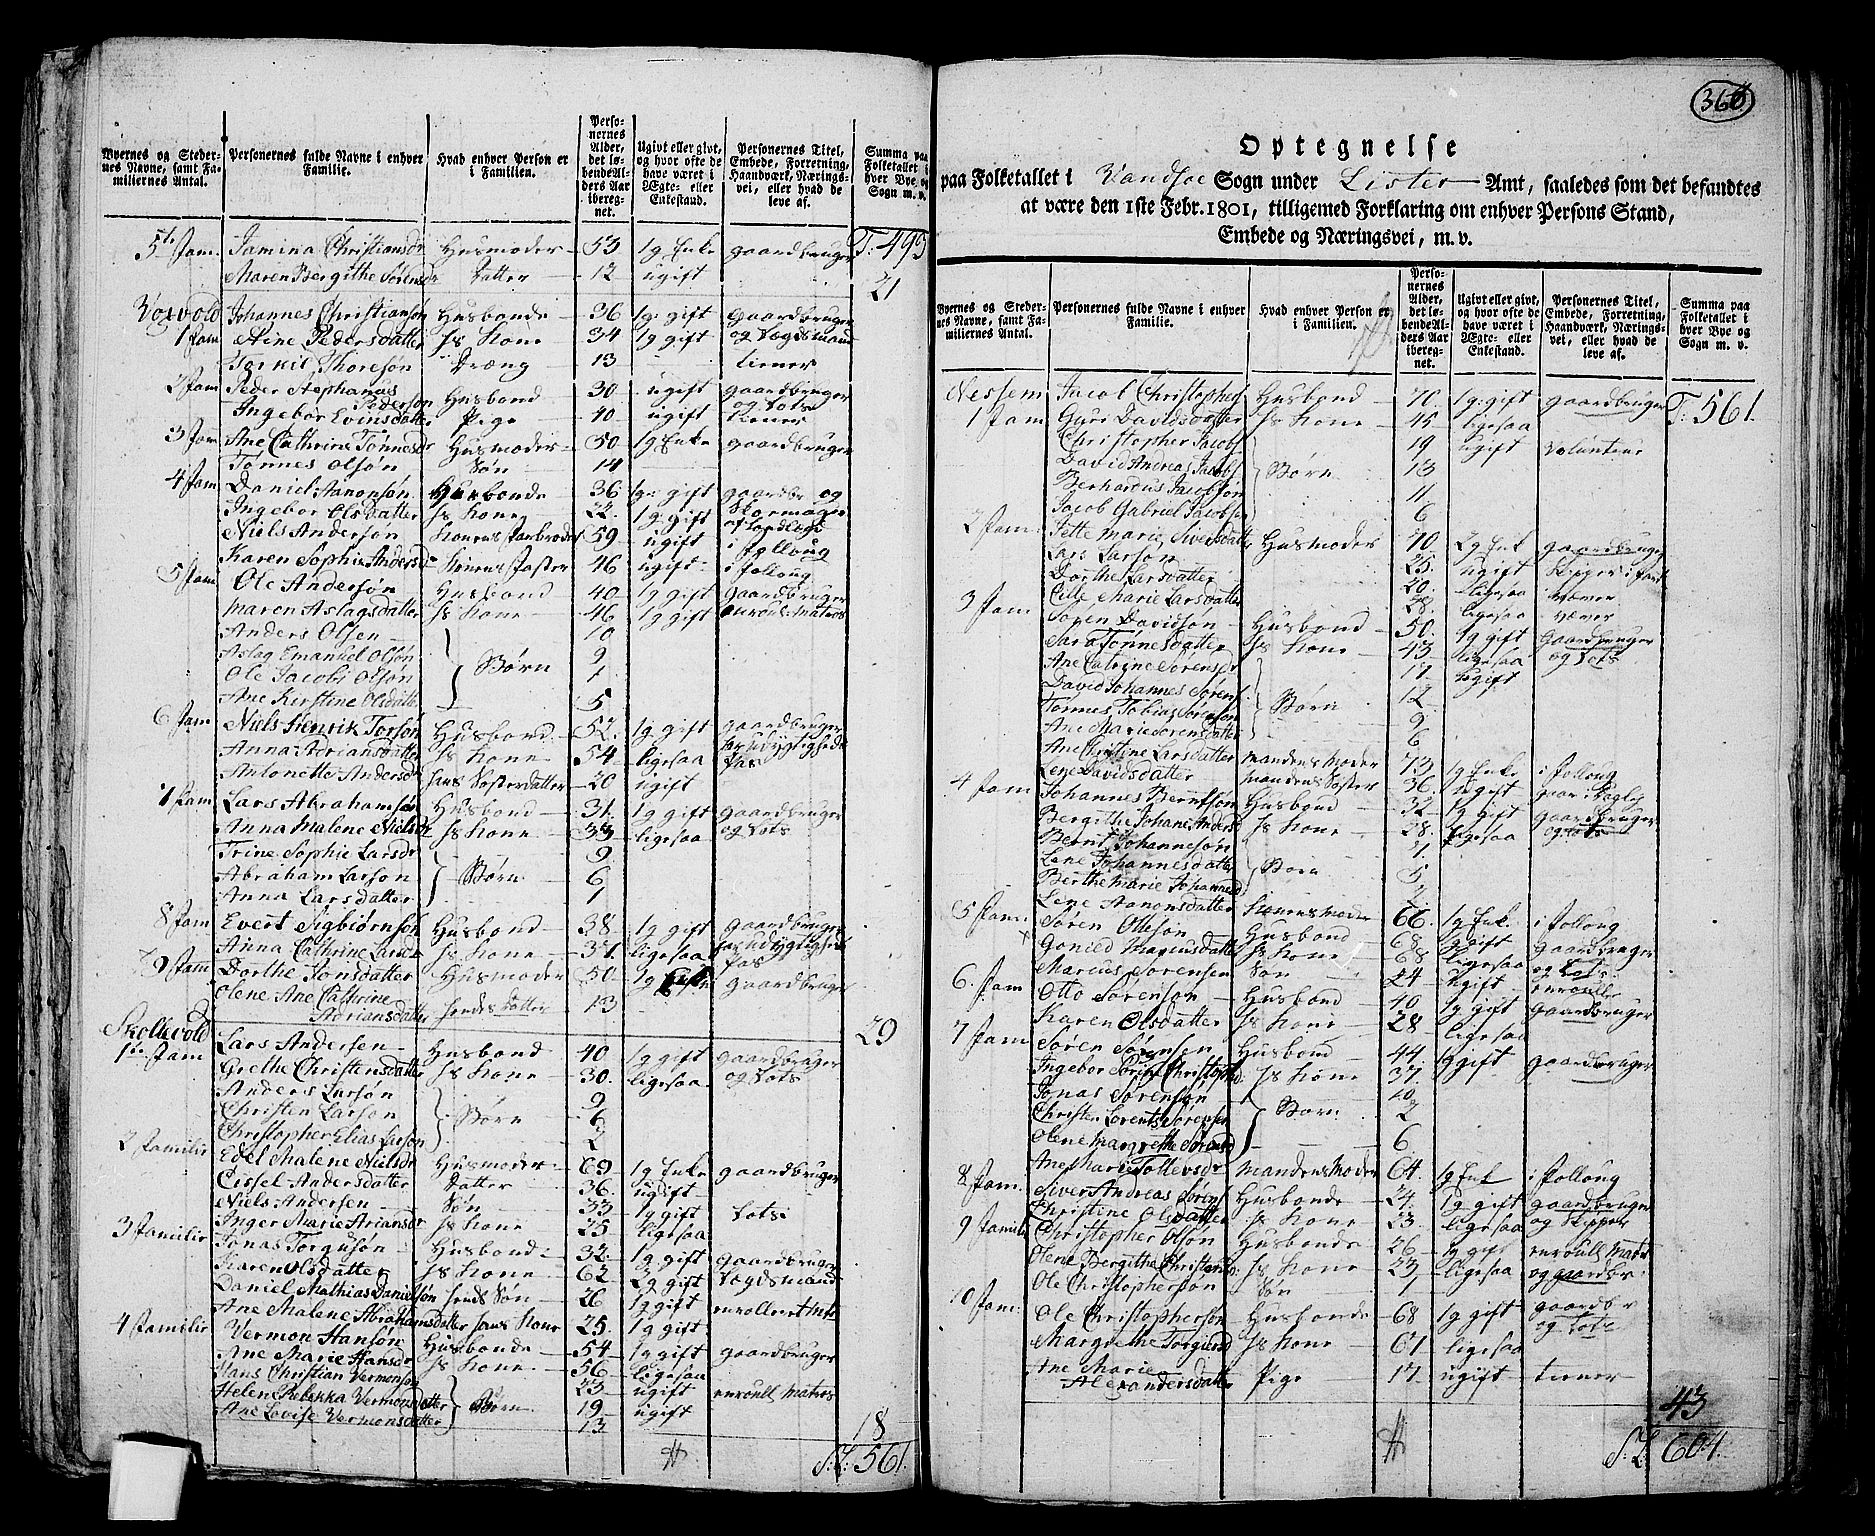 Byernes og Steder-nes Navne, samt Fa-miliernes Antal. Personernes fulde Navne i enhver Familie. Hvad enhver Person er i Familien. Perso-nernes Alder, det lø-bende Al-ders Aar iberegnet. Ugivt eller givt, og hvor ofte de have været i Ægte- eller Enkestand. Personernes Titel, Embede, Forretning, Haandværk, Nærings-vei, eller hvad de leve af. Summa paa Folketallet i hver Bye og Sogn m. v.
5te Fam. Jamina Christiansdr Husmoder 53 1g Enke gaardbruger T: 493
Maren Bergithe Sørensdr Datter 12 ugift 21
Voxvold Johannes Christiansøn Husbonde 36 1g: gift gaardbruger
1 Fam Aine Pedersdatter hs Kone 34 1g gift og Vogdsmand
Torkil Thoresøn Dræng 13 tiener
2 Fam Peder Stephanus Pederson Husbond 30 ugift gaardbruger og Lots
Ingebor Evinsdatter Pige 40 ugift tiener
3 Fam Ane Cathrine Tønnesdr Husmoder 50 1g Enke gaardbruger
Tønnes Olsøn Søn 14
4 Fam Daniel Aanonsøn Husbonde 36 1g: gift gaardbr og
Ingebor Olsdatter hs Kone 22 1g: gift Skomager
Niels Anderson Konens Farbroder 59 ugift af Landlægd i Follaug
Karen Sophie Andersd Konens Faster 46 ugift i Follaug
5 Fam Ole Andersøn Husbond 40 1g gift gaardbruger
Maren Aslagsdatter hs Kone 46 1g gift enroul: matros
Anders Olsen 10
Aslag Emanuel Olsøn 9
Ole Jacobi Olsøn Børn 7
Ane Kirstine Olsdatter 5
6 Fam Niels Henrik Torsøn Husbond 52 1g gift gaardbruger
Anna Adriansdatter hs Kone 54 ligesaa for udygtigheds Pas
Antonette Andersdr hans Søsterdatter 20 ugift
7 Fam Lars Abrahamsøn Husbond 31 1g gift gaardbruger
Anna Malene Nielsdr hs Kone 33 ligesaa og Lots
Trine Sophie Larsdr 9
Abraham Larsøn Børn 6
Anna Larsdatter 1
8 Fam Evert Sigbiørnsøn Husbond 38 1g gift gaardbruger
Anna Cathrine Larsdr hs Kone 37 ligesaa for udygtigheds Pas
9 Fam Dorthe Jonsdatter Husmoder 50 1g gaardbruger
Olene Ane Cathrine Adriansdatter hendes Datter 13
Skollevold Lars Andersen Husbond 40 1g gift gaardbruger 29
1te Fam Grethe Christensdatter hs Kone 30 ligesaa og Lots
Anders Larsøn 9
Christen Larson Børn 6
Christopher Elias Larson 2
2 Familir Edel Malene Nielsdr Husmoder 69 1g Enke gaardbruger
Cissel Andersdatter Datter 36 ugift
Niels Andersen Søn 33 1g gift Lots
Inger Marie Ariansdr hs Kone 25 ligesaa
3 Familir Jonas Torgusøn Husbond 32 1g gift gaardbruger
Karen Olsdatter hs Kone 62 2g gift Vogdsmand
Daniel Mathias Danielsøn hends Søn 26 1g gift enrollert
Ane Malene Abrahamsdatter hans Kone 25 1g gift
4 Familir Vermon Hansøn Husbonde 54 1g gift gaardbruger
Ane Marie Hansdr hs Kone 56 ligesaa
Hans Christian Vermonsøn 23 ugift enroull matros
Helen Rebekka Vermonsdatter Børn 19 ugift
Ane Lovise Vermonsdatter 13
18
S: L: 561.
366
Optegnelse
paa Folketallet i Vandsøe Sogn under Lister Amt, saaledes som det befandtes
at være den 1ste Febr. 1801, tilligemed Forklaring om enhver Persons Stand,
Embede og Næringsvei, m. v.
Byernes og Steder-nes Navne, samt Fa-miliernes Antal. Personernes fulde Navne i enhver Familie. Hvad enhver Person er i Familien. Perso-nernes Alder, det lø-bende Al-ders Aar iberegnet. Ugivt eller givt, og hvor ofte de have været i Ægte- eller Enkestand. Personernes Titel, Embede, Forretning, Haandværk, Nærings-vei, eller hvad de leve af. Summa paa Folketallet i hver Bye og Sogn m. v.
Nessem Jacob Christophers Husbond 70 1g: gift gaardbruger T: 561
1 Fam Guro Davidsdatter hs Kone 45 ligesaa
Christopher Jacobs 19 ugift Volunteur
David Andreas Jacobs Børn 13
Berhardus Jacobsøn 11
Jacob Gabriel Jacobsen 6
2 Fam: Jette marie Siversdatter Husmoder 70 2g Enk gaardbruger
Lars Larson 25 ugift
Dorthe Larsdatter 20 ligesaa væver
Cille Marie Larsdatter 28 ligesaa væver
3 Fam. Soren Davidsøn Husbond 50 1g gift gaardbruger
Sara Tønnesdatter hs Kone 43 ligesaa og Lots
Ane Catrine Sorensdr 17 ugift
David Johannes Sørens Børn 12
Tønnes Tobias Sørenson 9
Ane Marie Sørensdatter 6
Ane Christine Larsdatter mandens Moder 73 1g Enke i Follaug
Lene Davidsdatter mandens Søster 36 ugift
4 Fam Johannes Berntson Husbond 32 1g gift gaardbruger
Bergithe Johane Andersd hs Kone 28 ligesaa og Lots
Bernt Johanneson 7
Lene Johannesdatter Børn 5
Berthe Marie Johannesd 2
Lene Aanonsdatter Konens Moder 66 1g Enk i Follaug
5 Fam: Søren Otteson Husbond 68 1g gift gaardbruger
Gonild Magnusdatter hs Kone 68 ligesaa og Lots
Marcus Sørensen Søn 24 ugift enroullt
6 Fam Otto Sørenson Husbond 40 1g gift gaardbruger
Karen Olsdatter hs Kone 28 ligesaa
7 Fam Søren Sørensen Husbond 44 1g gift gaardbruger
Ingebor Christophd hs Kone 37
Jonas Sørensøn 10
Christen Lorents Sørensen Børn 2
Olene Margrethe Sørensd 6
Ane Marie Tollevsdr mandens Moder 64 1g Enk i Follaug
8 Fam. Siver Andreas Sørens Husbonde 24 1g gift gaardbruger
Christine Olsdatter hs Kone 23 ligesaa og Skipper
9 Famili Christopher Olson Husbonde 26 1g gift enroull Matr
Olene Bergithe Christensd hs Kone 23 ligesaa og gaardbr
Ole Christophersøn Søn 1
10 Fam: Ole Christopherson Husbonde 68 1g gift gaardbr og Lots
Margrethe Torgiersd hs Kone 67 ligesaa
Ane Marie Alexandersdatter Pige 17 ugift tiener
43
S: L: 604.